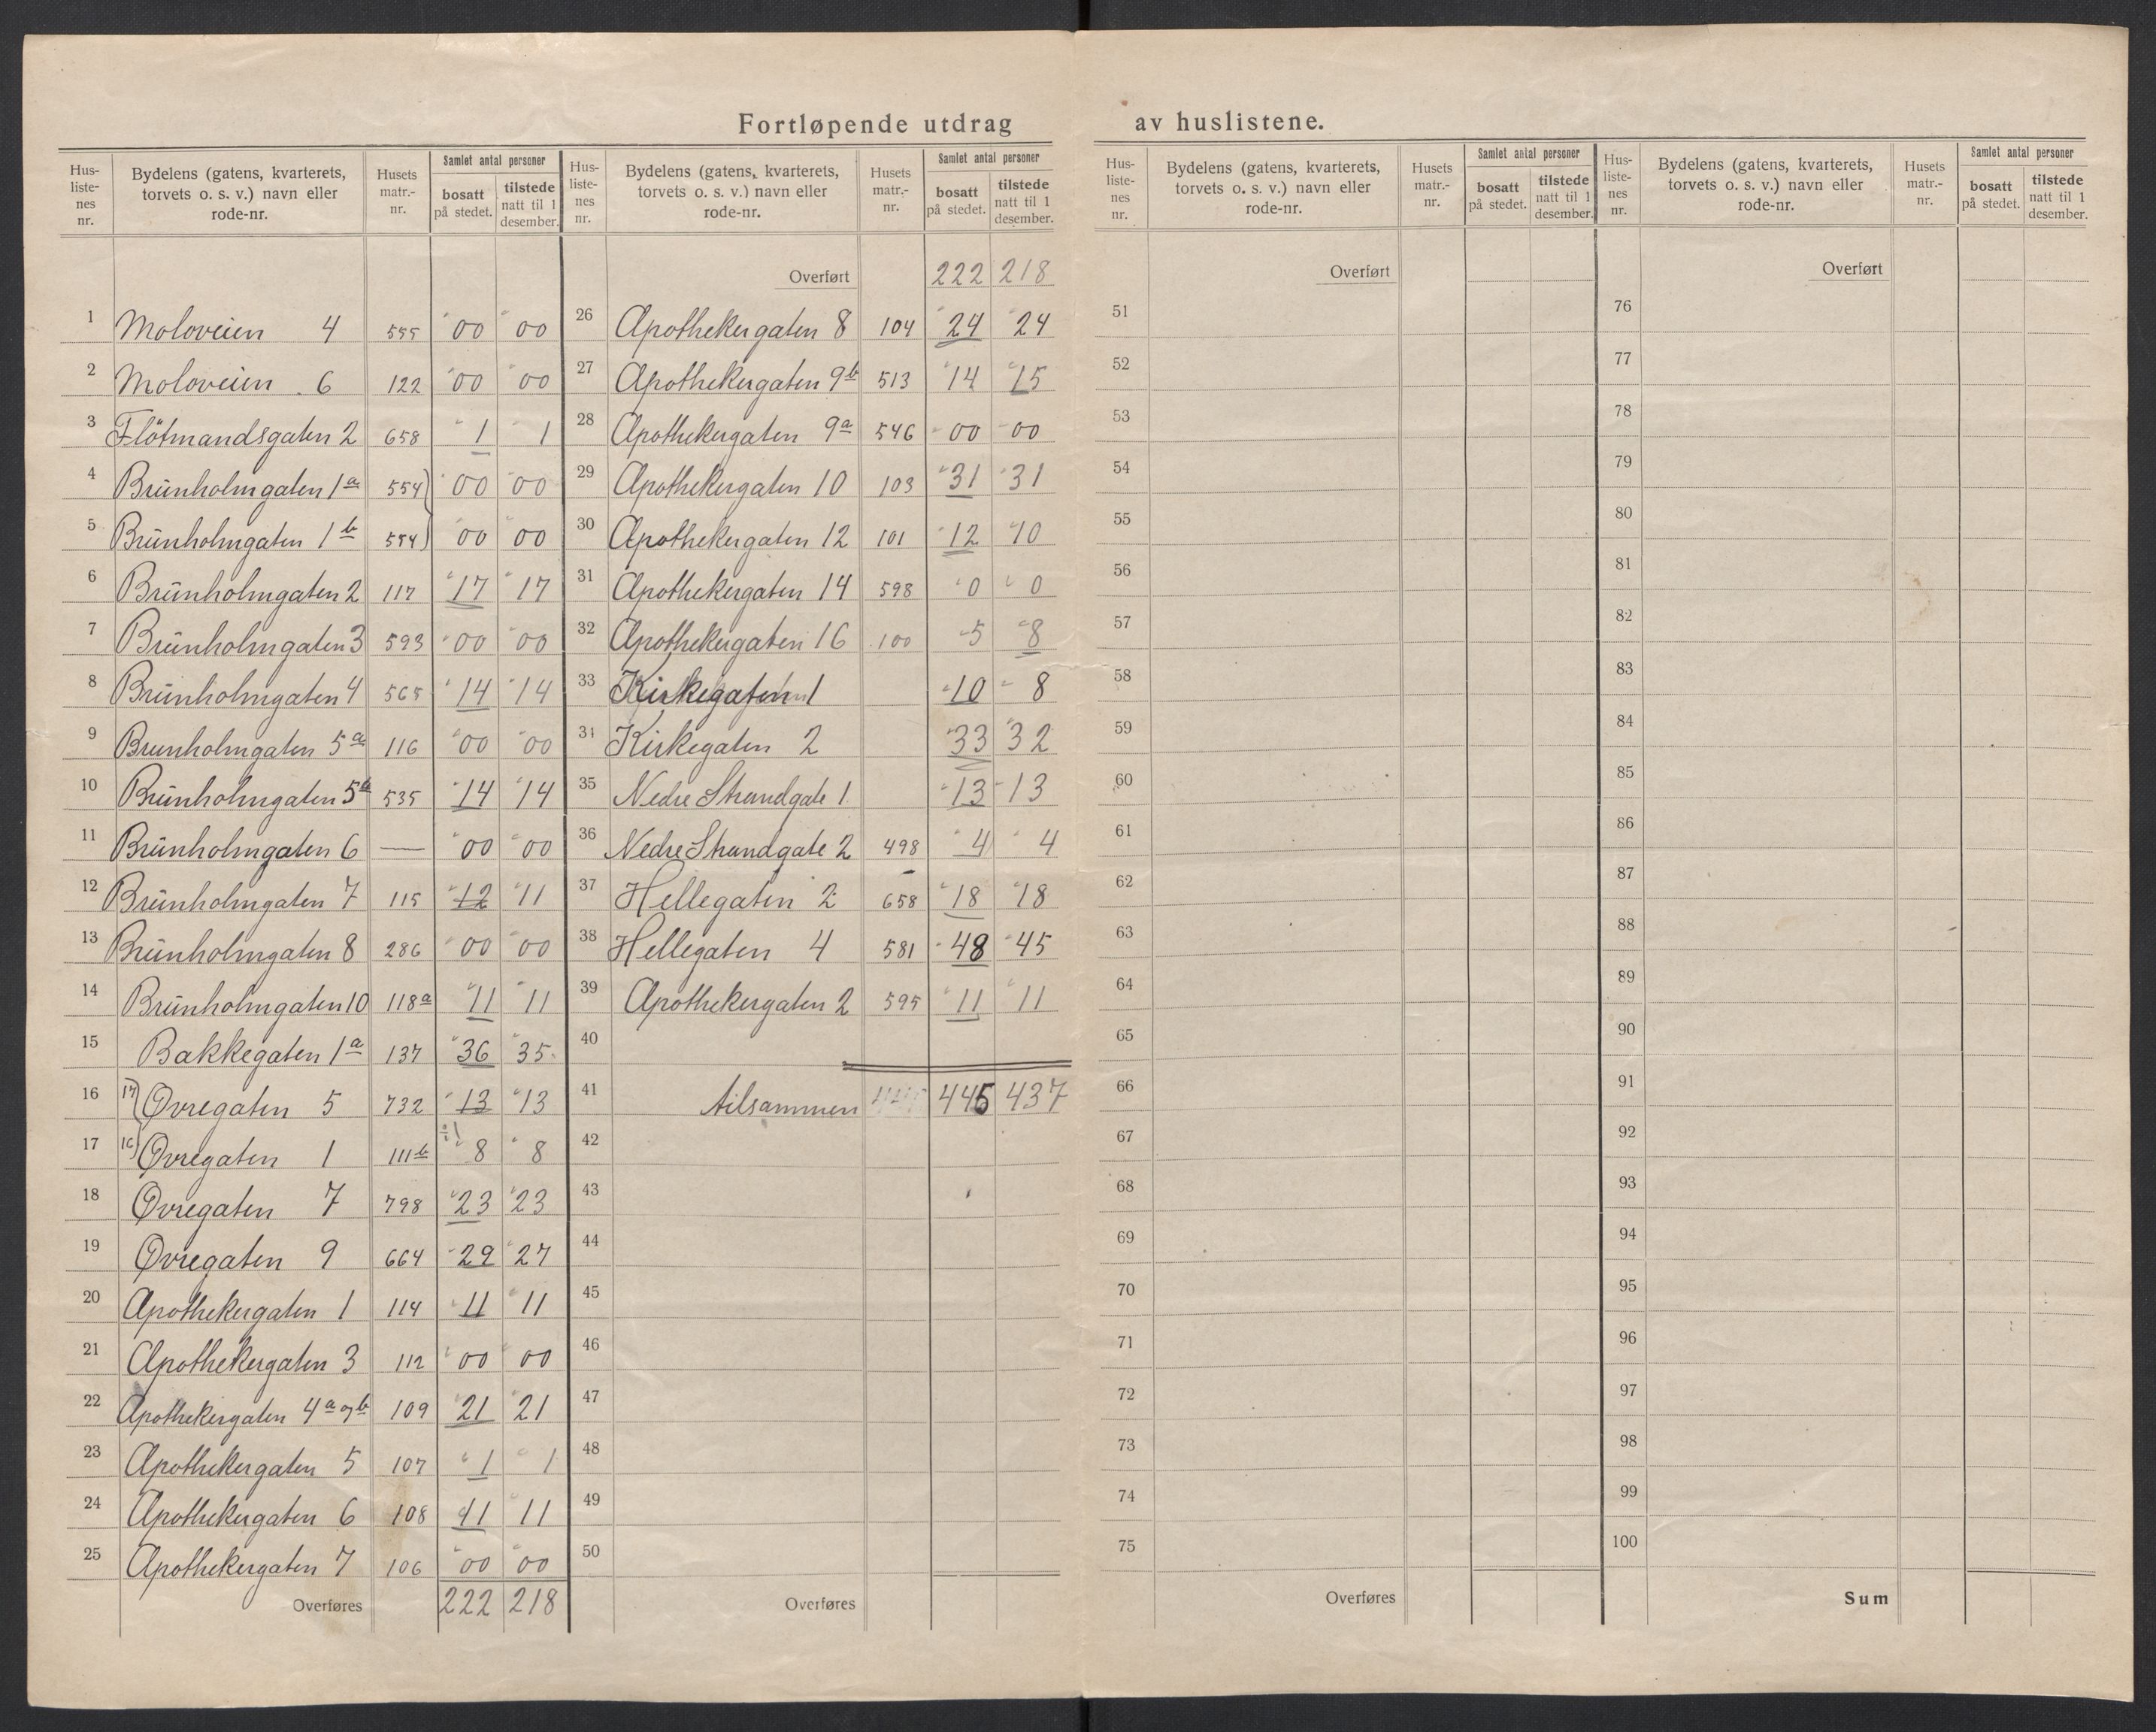 Fortløpende utdrag av huslistene.
Hus-liste-nes nr. | Bydelens (gatens, kvarterets, torvets o. s. v.) navn eller rode-nr. | Husets matr.-nr. | Samlet antal personer | bosatt på stedet. | tilstede natt til 1 desember.
1 Moloveien 4 555 00 00
2 Moloveien 6 122 00 00
3 Flötmandsgaten 2 658 1 1
4 Brünholmgaten 1a 554 00 00
5 Brünholmgaten 1b 554 00 00
6 Brünholmgaten 2 117 17 17
7 Brünholmgaten 3 593 00 00
8 Brünholmgaten 4 565 14 14
9 Brunholmgaten 5a 116 00 00
10 Brünholmgaten 5b 535 14 14
11 Brünholmgaten 6 — 00 00
12 Brünholmgaten 7 115 12 11
13 Brünholmgaten 8 286 00 00
14 Brünholmgaten 10 118a 11 11
15 Bakkegaten 1a 137 36 35
16 17) Øvregaten 5 732 13 13
17 16) Øvregaten 1 111b 8 8
18 Øvregaten 7 798 23 23
19 Øvregaten 9 664 29 27
20 Apothekergaten 1 114 11 11
21 Apothekergaten 3 112 00 00
22 Apothekergaten 4a og b 109 21 21
23 Apothekergaten 5 107 1 1
24 Apothekergaten 6 108 11 11
25 Apothekergaten 7 106 00 00
Overføres 222 218
Hus-liste-nes nr. | Bydelens (gatens, kvarterets, torvets o. s. v.) navn eller rode-nr. | Husets matr.-nr. | Samlet antal personer | bosatt på stedet. | tilstede natt til 1 desember.
Overført 222 218
26 Apothekergaten 8 104 24 24
27 Apothekergaten 9b 513 14 15
28 Apothekergaten 9a 546 00 00
29 Apothekergaten 10 103 31 31
30 Apothekergaten 12 101 12 10
31 Apothekergaten 14 598 0 0
32 Apothekergaten 16 100 5 8
33 Kirkegaten 1 10 8
34 Kirkegaten 2 33 32
35 Nedre Strandgate 1 13 13
36 Nedre Strandgate 2 498 4 4
37 Hellegaten 2 658 18 18
38 Hellegaten 4 581 48 45
39 Apothekergaten 2 595 11 11
40
41 tilsammen 445 437
42
43
44
45
46
47
48
49
50
Overføres
Hus-liste-nes nr. | Bydelens (gatens, kvarterets, torvets o. s. v.) navn eller rode-nr. | Husets matr.-nr. | Samlet antal personer | bosatt på stedet. | tilstede natt til 1 desember.
Overført
51
52
53
54
55
56
57
58
59
60
61
62
63
64
65
66
67
68
69
70
71
72
73
74
75
Overføres
Hus-liste-nes nr. | Bydelens (gatens, kvarterets, torvets o. s. v.) navn eller rode-nr. | Husets matr.-nr. | Samlet antal personer | bosatt på stedet. | tilstede natt til 1 desember.
Overført
76
77
78
79
80
81
82
83
84
85
86
87
88
89
90
91
92
93
94
95
96
97
98
99
100
Sum